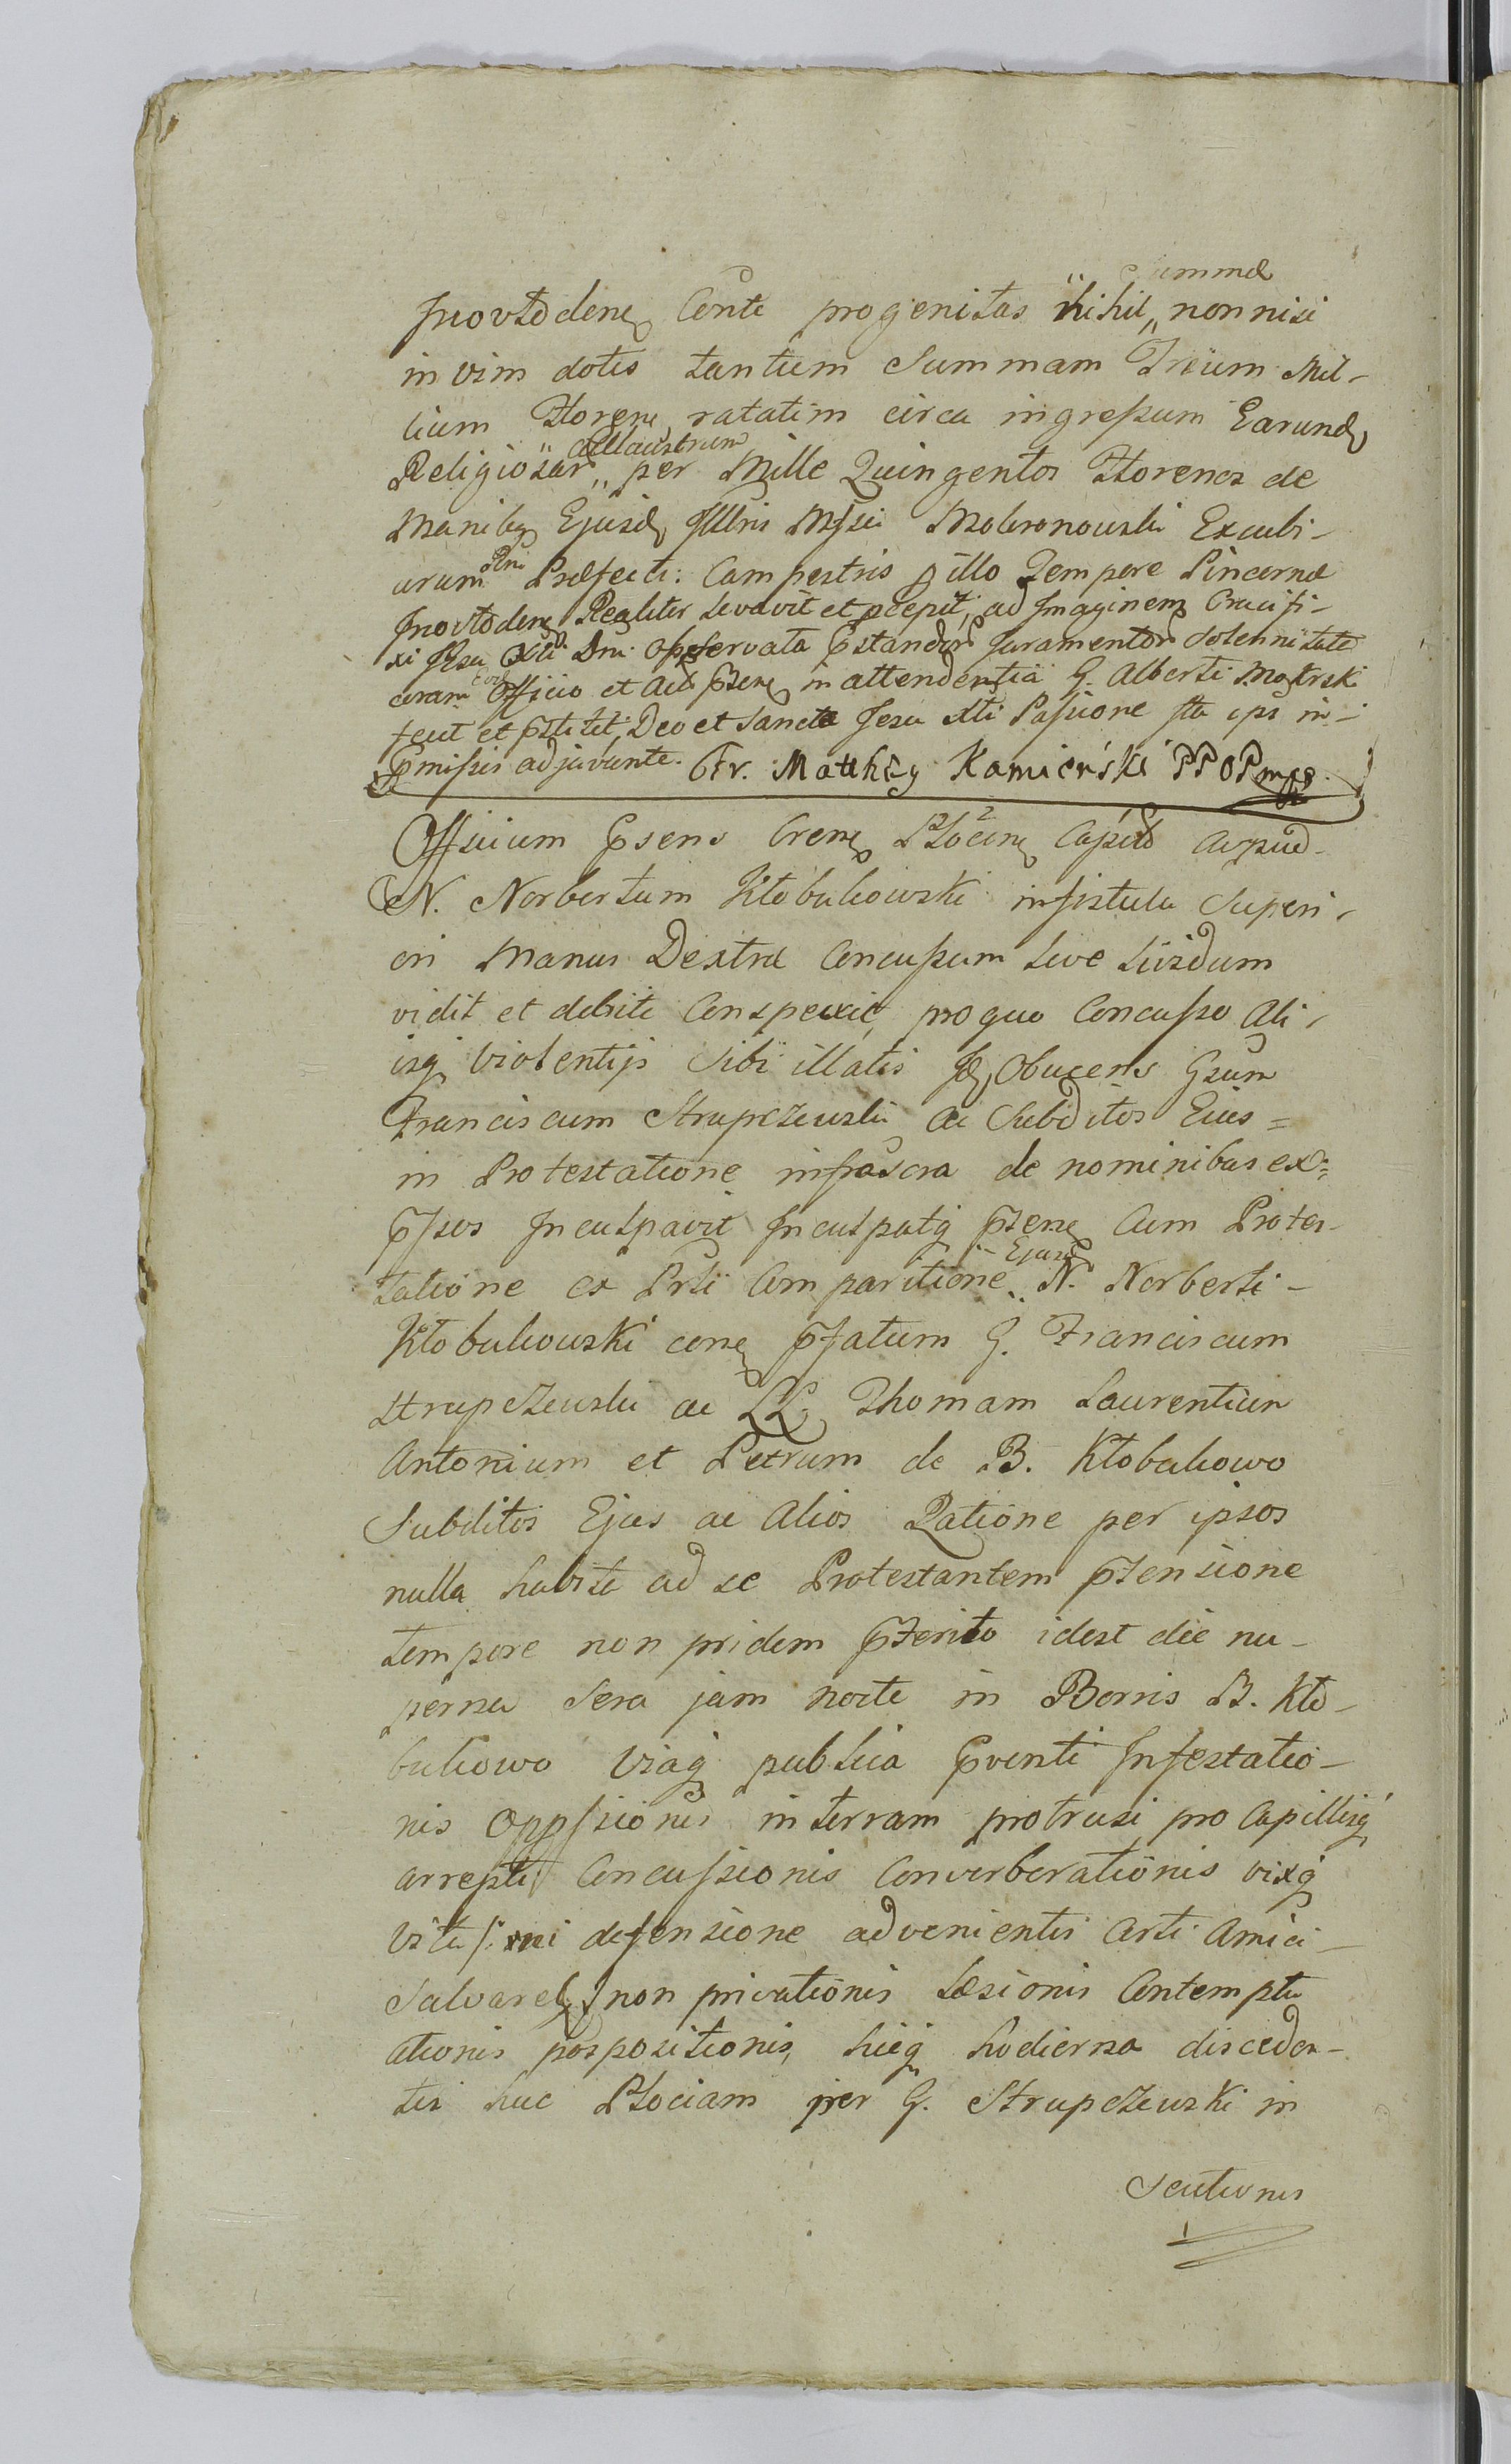 summæ
Inovlodens Conte progenitas nihil,, non nisi
in vim dotis tantum Summam Trium Mil-
lium Floren, ratatim circa ingressum Earund
ad Claustrum
Religiosar,, per Mille Quingentos Florenos de
Manibq Ejusd Illris Mgfici Mokronowski Excubi-
arum Præfecti: Campestris p illo Tempore Pincernæ
Inovlodens Realiter levavit et pcepit, ad Imaginem Crucifi-
xi Jesu Xti Dni observata pstandor Juramentor Solennitate
coram Officio et Actis psen in attendentia G. Alberti
fecit et pstitit, Deo et Sancta Jesu Xti Passione ita ips in-
pmissis adjuvante. Fr. Mathæg Kamieński PPOP mpp.
Officium psens Crene Płocen Capit apud
N. Norbertum Kłobukowski in fistula Superi-
ori Manus Dextræ Concussum sive Lividum
vidit et debite Conspexit, pro quo Concusso Ali-
isq violentijs Sibi illatis Id, Obucens Gsum
Franciscum Strupczewski ac Subditos Eius=
in Protestatione infrascra de nominibus ex=
pssos Inculpavit Inculpatq psens Cum Protes-
tatione ex Prli Comparitione,, Ejusd N. Norberti-
Kłobukowski cone pfatum G. Franciscum
Strupczewski ac LL, Thomam Laurentium
Antonium et Petrum de B. Kłobukowo
Subditos Ejus ac Alios Ratione per ipsos
nulla habita ad se Protestantem ptensione
tempore non pridem pterito idest die nu-
perna Sera jam nocte in Bonis B. Kło-
bukowo viaq publica pventi Infestatio-
nis Oppssionis in terram protrusi, pro Capillisq
arrepti Concussionis Converberationis vixq
vita /: ni defensione advenientis Arti Amici-
Salvaret :/ non privationis Læsionis Contemptu
ationis pospositionis, hicq hodierna disceden-
tis huc Płociam per G. Strupczewski in
Scutionis